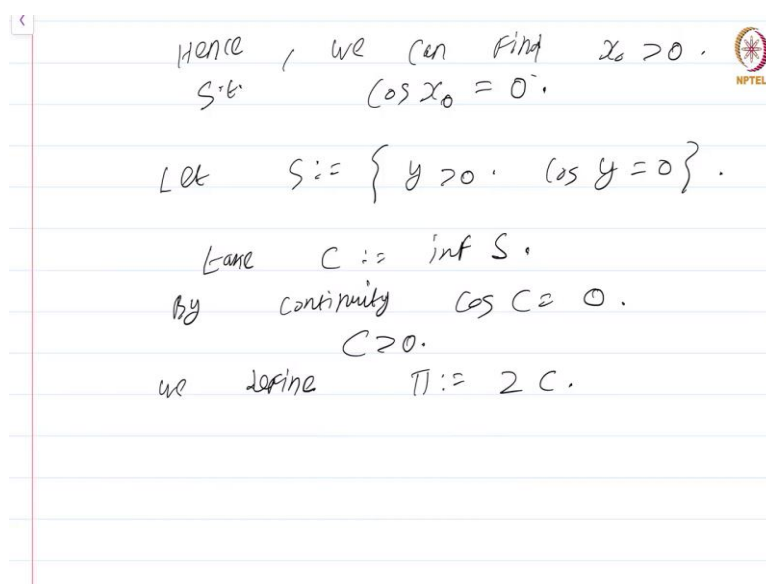 Hence, we can find x₀ > 0.
NPTEL
s.t. cos x₀ = 0.
Let S := { y > 0 . cos y = 0 } .
take C := inf S.
By continuity cos C = 0.
C > 0.
we define π := 2 C.